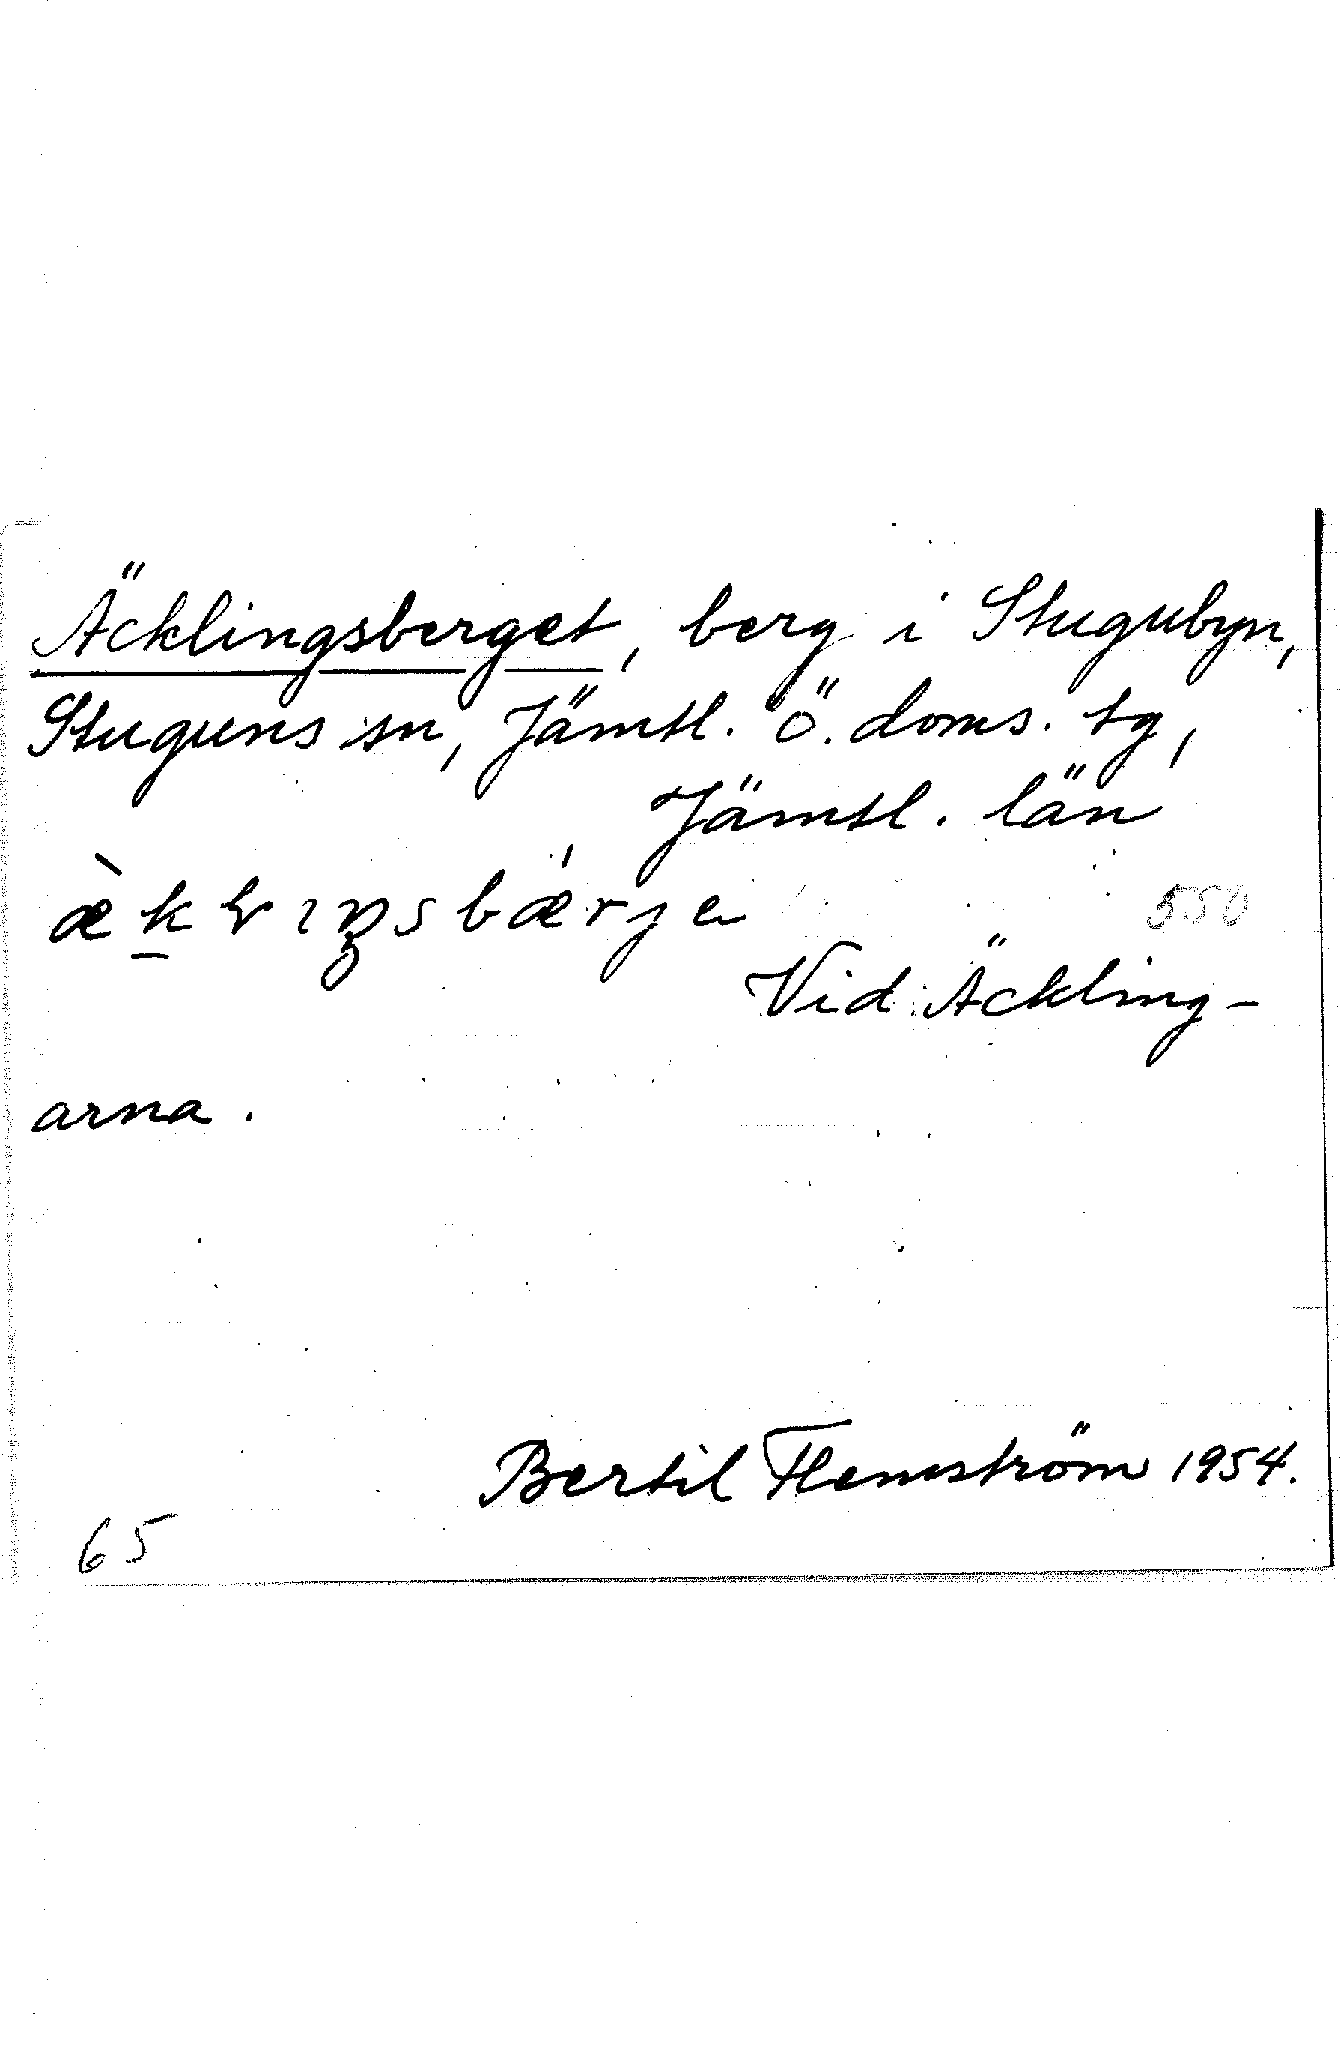 Äcklingsberget, berg i Stugubyn,
Stuguns sn, Jämtl. ö. doms. tg,
Jämtl. län
550
Vid Äckling-
arna.
Bertil Flemström 1954.
65